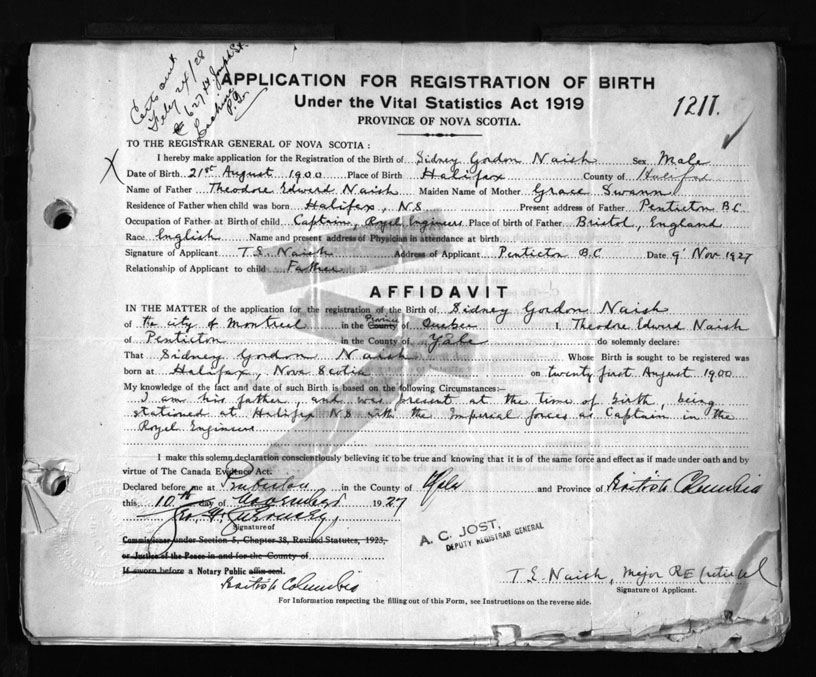 Feby 24/28
APPLICATION FOR REGISTRATION OF BIRTH
Under the Vital Statistics Act 1919
1211.
PROVINCE OF NOVA SCOTIA.
TO THE REGISTRAR GENERAL OF NOVA SCOTIA:
I hereby make application for the Registration of the Birth of Sidney Gordon Naish Sex Male
X Date of Birth 21st August 1900 Place of Birth Halifax County of Halifax
Name of Father Theodore Edward Naish Maiden Name of Mother Grace Swann
Residence of Father when child was born Halifax, N.S Present address of Father Penticton B.C
Occupation of Father at Birth of child Captain, Royal Engineers Place of birth of Father Bristol, England
Race English Name and present address of Physician in attendance at birth
Signature of Applicant T.E. Naish Address of Applicant Penticton B.C Date 9' Nov 1927
Relationship of Applicant to child Father
AFFIDAVIT
IN THE MATTER of the application for the registration of the Birth of Sidney Gordon Naish
of the city of Montreal in the County Province of Quebec I, Theodore Edward Naish
of Penticton in the County of Yale do solemnly declare:
That Sidney Gordon Naish Whose Birth is sought to be registered was
born at Halifax, Nova Scotia on twenty first August 1900
My knowledge of the fact and date of such Birth is based on the following Circumstances:—
I am his father, and was present at the time of birth, being
stationed at Halifax N.S with the Imperial forces as Captain in the
Royal Engineers
I make this solemn declaration conscientiously believing it to be true and knowing that it is of the same force and effect as if made under oath and by
virtue of The Canada Evidence Act.
Declared before me at Penticton in the County of Yale and Province of British Columbia
this 10th day of November 1927
Signature of
Commissioner under Section 5, Chapter 38, Revised Statutes, 1923,
or Justice of the Peace in and for the County of
If sworn before a Notary Public affix seal.
British Columbia
A. C. JOST,
DEPUTY REGISTRAR GENERAL
T.E. Naish, Major R.E. retired
Signature of Applicant.
For Information respecting the filling out of this Form, see Instructions on the reverse side.